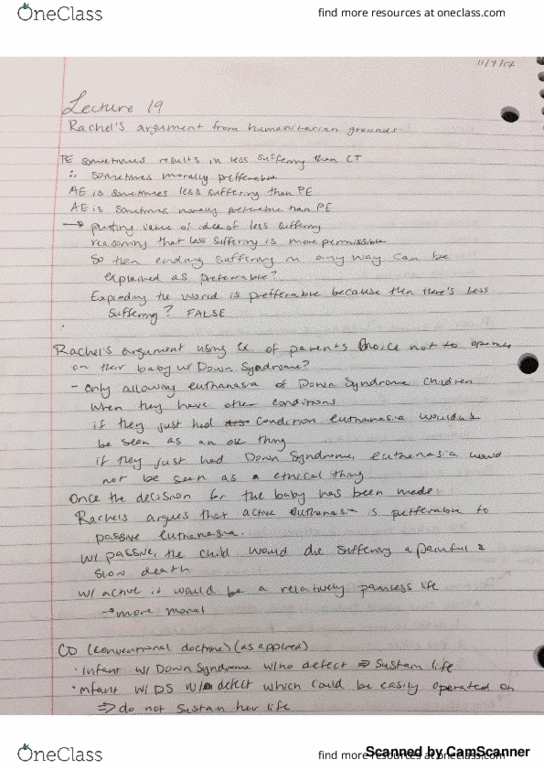 OneClass
find more resources at oneclass.com
11/7/17
Lecture 19
Rachel's argument from humanitarian grounds
PE sometimes results in less suffering than CT
∴ sometimes morally prefferable
AE is sometimes less suffering than PE
AE is sometimes morally preferable than PE
→ putting value of idea of less suffering
reasoning that less suffering is more permissible
So then ending suffering in any way can be
explained as preferable?
Exploding the world is prefferable because then there's less
suffering? FALSE
Rachel's argument using ex. of parents choice not to operate
on their baby w/ Down Syndrome?
- Only allowing euthanasia of Down Syndrome children
when they have other conditions
if they just had condition euthanasia wouldn't
be seen as an ok thing
if they just had Down Syndrome, euthenasia would
not be seen as a ethical thing
Once the decision for the baby has been made:
Rachels argues that active euthanasia is prefferable to
passive euthanasia.
w/ passive, the child would die suffering a painful &
slow death
w/ active it would be a relatively painless life
→ more moral
CD (conventional doctrine) (as applied)
• Infant w/ Down Syndrome w/no defect ⇒ Sustain life
• Infant w/ DS w/ defect which could be easily operated on
⇒ do not sustain her life
OneClass
find more resources at oneclass.com
Scanned by CamScanner